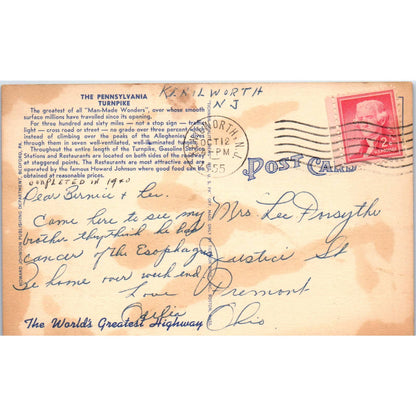 KENILWORTH
N J
THE PENNSYLVANIA
TURNPIKE
The greatest of all "Man-Made Wonders", over whose smooth
surface millions have travelled since its opening.
For three hundred and sixty miles — not a stop sign — traffic
light — cross road or street — no grade over three percent which
instead of climbing over the peaks of the Alleghenies dives
through them in seven well-ventilated, well-illuminated tunnels.
Throughout the entire length of the Turnpike, Gasoline Service
Stations and Restaurants are located on both sides of the roadway
at staggered points. The Restaurants are most attractive and are
operated by the famous Howard Johnson where good food can be
obtained at reasonable prices.
COMPLETED IN 1940
OCT 12
PM
1955
POST CARD
2¢
Dear Bernice & Lee.
Came here to see my
brother they think he has
cancer of the Esophagus
Be home over weekend.
Love
Mrs Lee Forsythe
Justice St
Fremont
Ohio.
The World's Greatest Highway
HOWARD JOHNSON PUBLISHING DEPARTMENT, BEDFORD, PA.